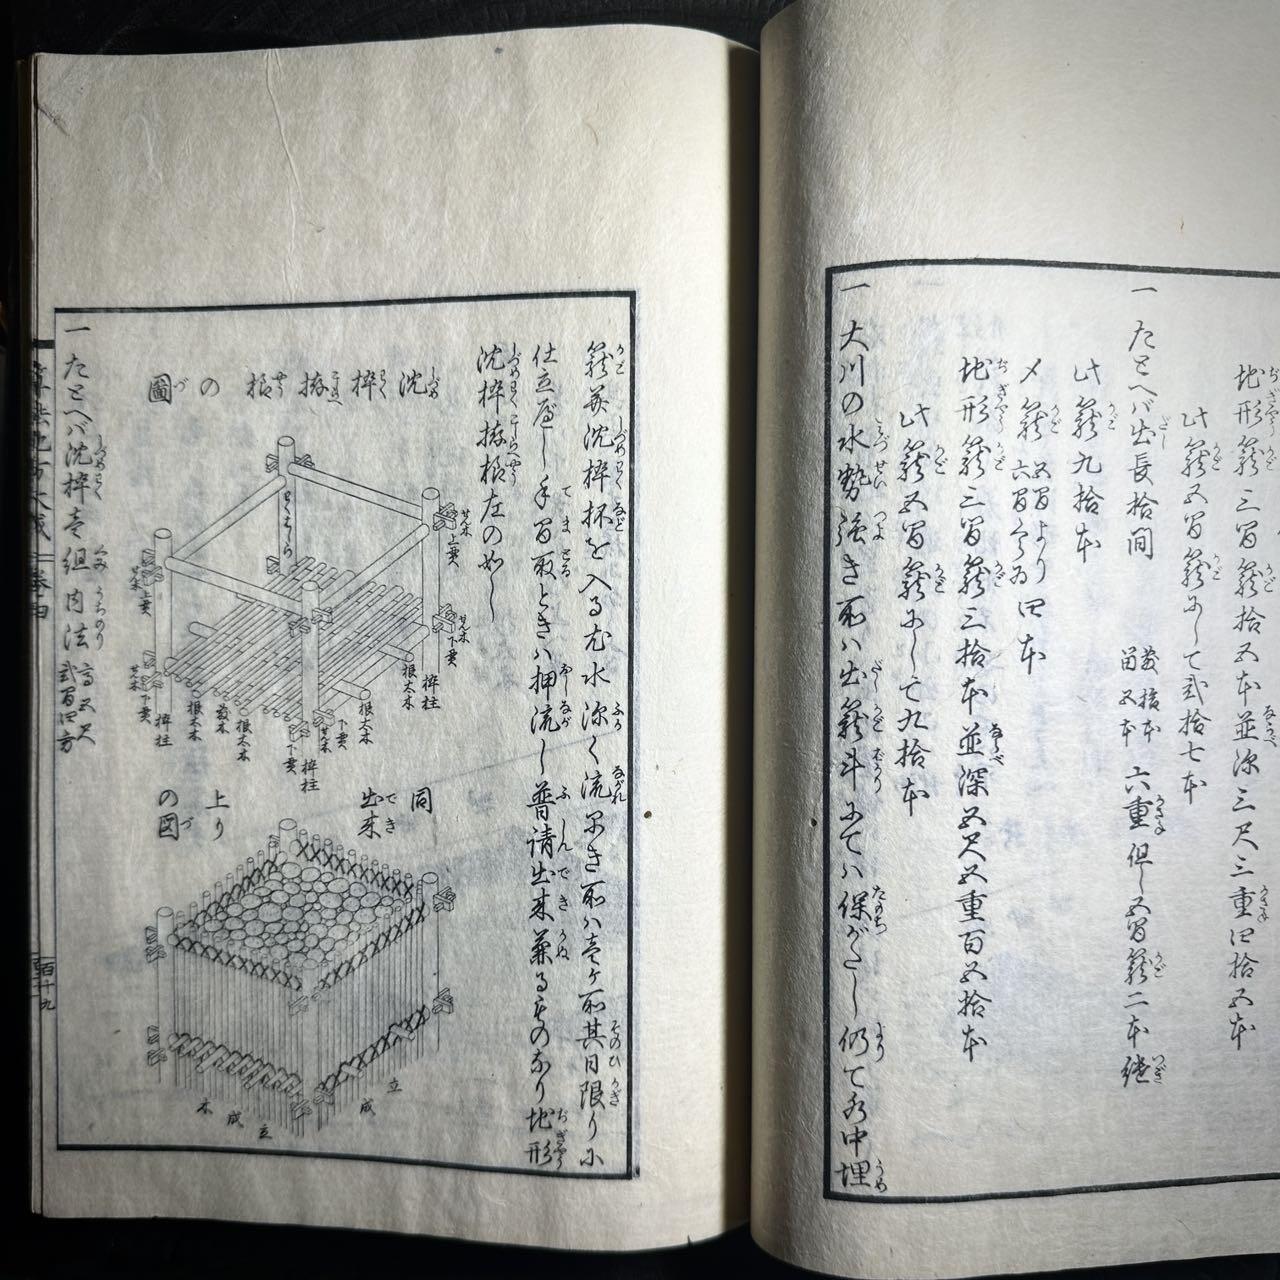 地形籠三間籠拾五本並深三尺三重四拾五本
此籠五間籠にして弐拾七本
一 たとへバ出長拾間 六重但し五間籠二本継
〆籠 五間より 六間くらゐ 四本
此籠九拾本
地形籠三間籠三拾本並深五尺五重百五拾本
此籠五間籠にして九拾本
一 大川の水勢強き所ハ出籠斗にてハ保がたし仍て水中埋
籠并沈枠抔を入るむ水深く流早き所ハ壱ヶ所其日限りに
仕立べし手間取ときハ押流し普請出来兼るものなり地形
沈枠拵様左の如し
沈枠拵様の圖
わくはしら
せん木
上貫
せん木
下貫
枠柱
根太木
根太木
下貫
せん木
枠柱
下貫
根太木
敷木
根太木
枠柱
下貫
せん木
上貫
せん木
同出来
上りの図
立成
立成木
一 たとへバ沈枠壱組内法 高五尺 弐間四方
算法地方大成 巻四
百十九